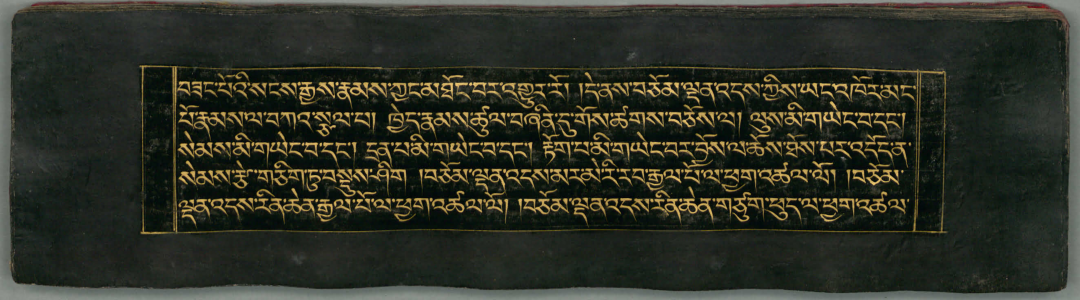 བཟང་པོའི་སངས་རྒྱས་རྣམས་ཀྱང་མཐོང་བར་འགྱུར་རོ། །དེ་ནས་བཅོམ་ལྡན་འདས་ཀྱིས་ཡང་འཁོར་མང་
པོ་རྣམས་ལ་བཀའ་སྩལ་པ། ཁྱེད་རྣམས་ཚུལ་བཞིན་དུ་གོས་ཚགས་བཅོས་ལ། ལུས་མི་གཡེང་བ་དང་།
སེམས་མི་གཡེང་བ་དང་། དྲན་པ་མི་གཡེང་བ་དང་། རྟོག་པ་མི་གཡེང་བར་བྱོས་ལ་ཆོས་ཐོས་པར་འདོད་ན་
སེམས་རྩེ་གཅིག་ཏུ་བསྡུས་ཤིག །བཅོམ་ལྡན་འདས་མར་མེ་རི་རབ་རྒྱལ་པོ་ལ་ཕྱག་འཚལ་ལོ། །བཅོམ་
ལྡན་འདས་རིན་ཆེན་རྒྱལ་པོ་ལ་ཕྱག་འཚལ་ལོ། །བཅོམ་ལྡན་འདས་རིན་ཆེན་གཙུག་ཕུད་ལ་ཕྱག་འཚལ་